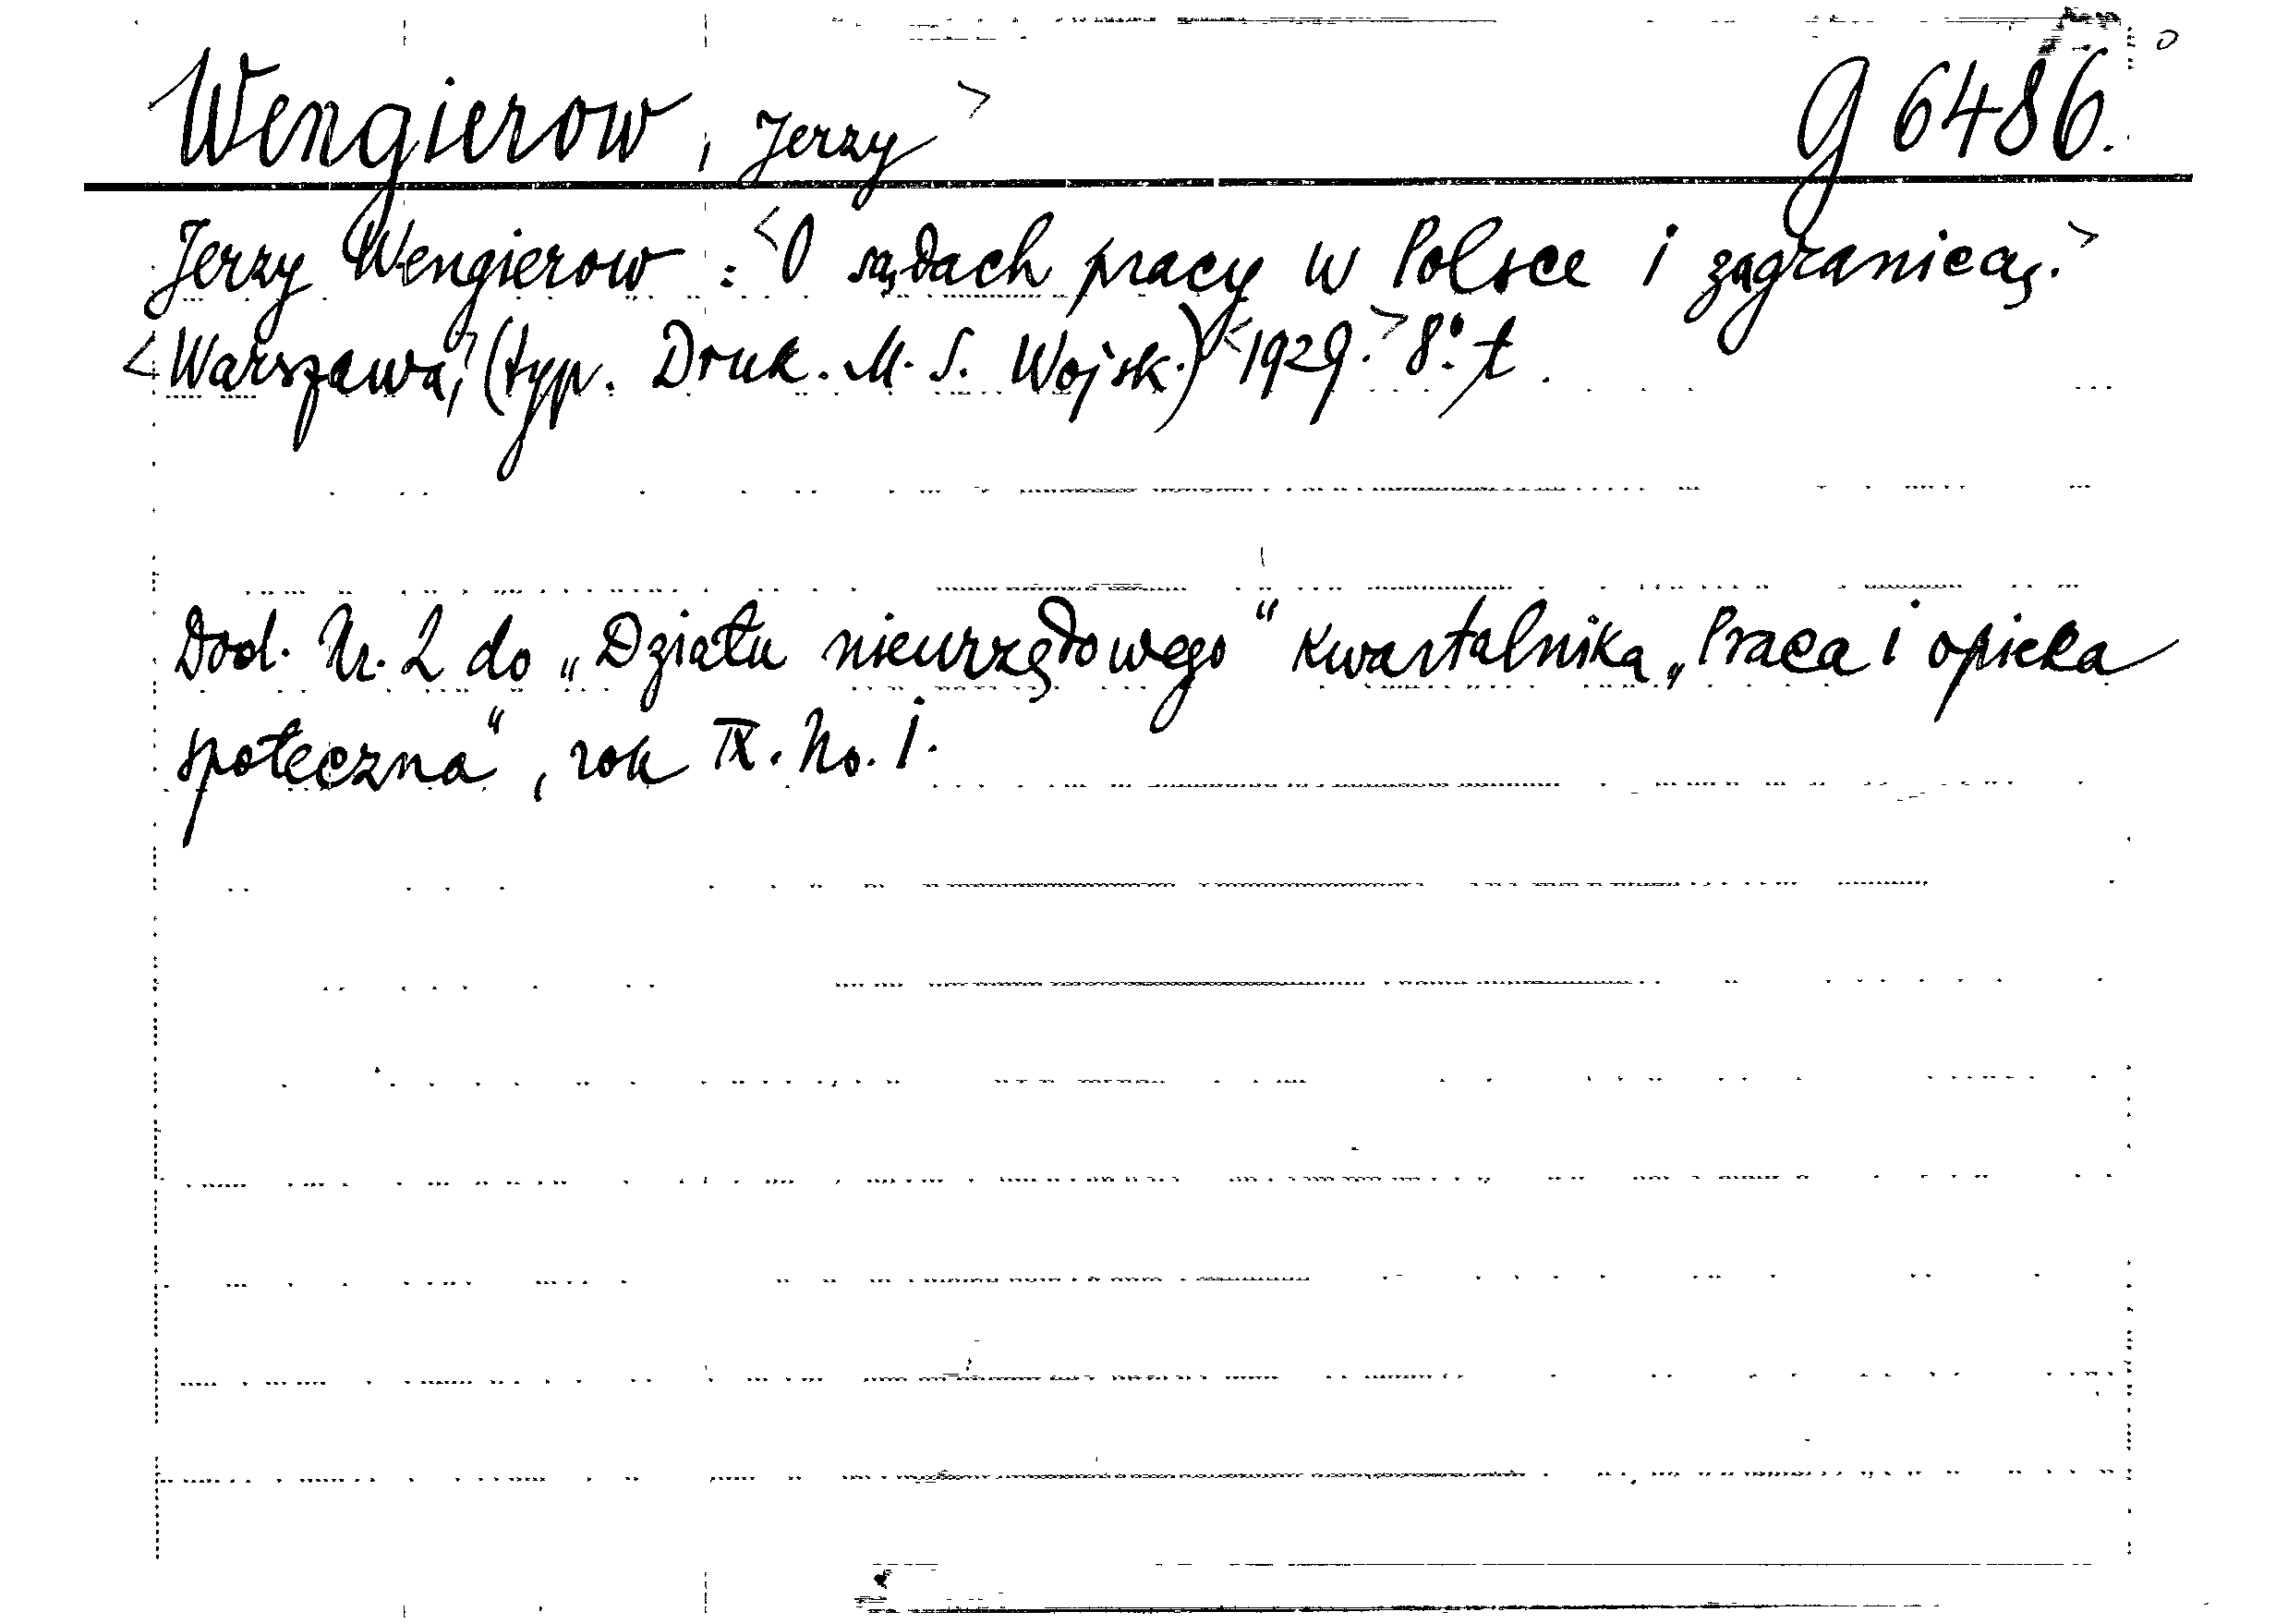 Wengierow, Jerzy> G 6486.
Jerzy Wengierow: <O sądach pracy w Polsce i zagranicą.>
<Warszawa,> (typ. Druk. M. S. Wojsk.) <1929.> 8° t.
Dod. Nr. 2 do „Działu nieurzędowego“ kwartalnika „Praca i opieka
społeczna“, rok IX. No. 1.